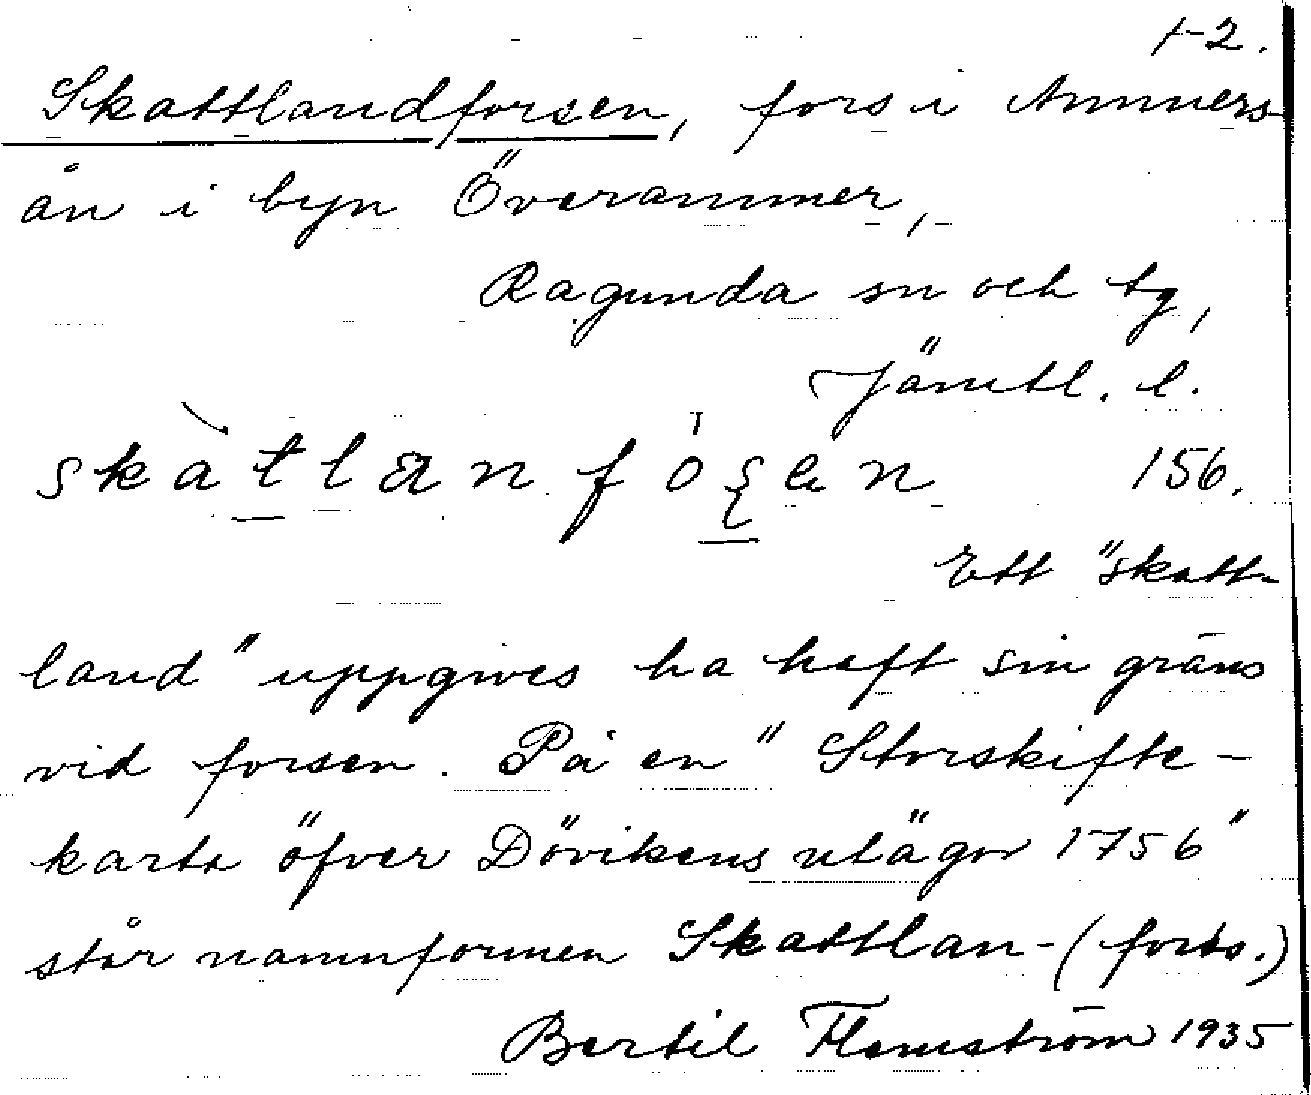 1-2.
Skattlandforsen, fors i Ammers-
ån i byn Överammer,
Ragunda sn och tg,
Jämtl. l.
skàtlan fósen 156.
Ett "skatt-
land" uppgives ha haft sin gräns
vid forsen. På en "Storskifte-
karta öfver Dövikens utägor 1756"
står namnformen Skattlan- (forts.)
Bertil Flemström 1935